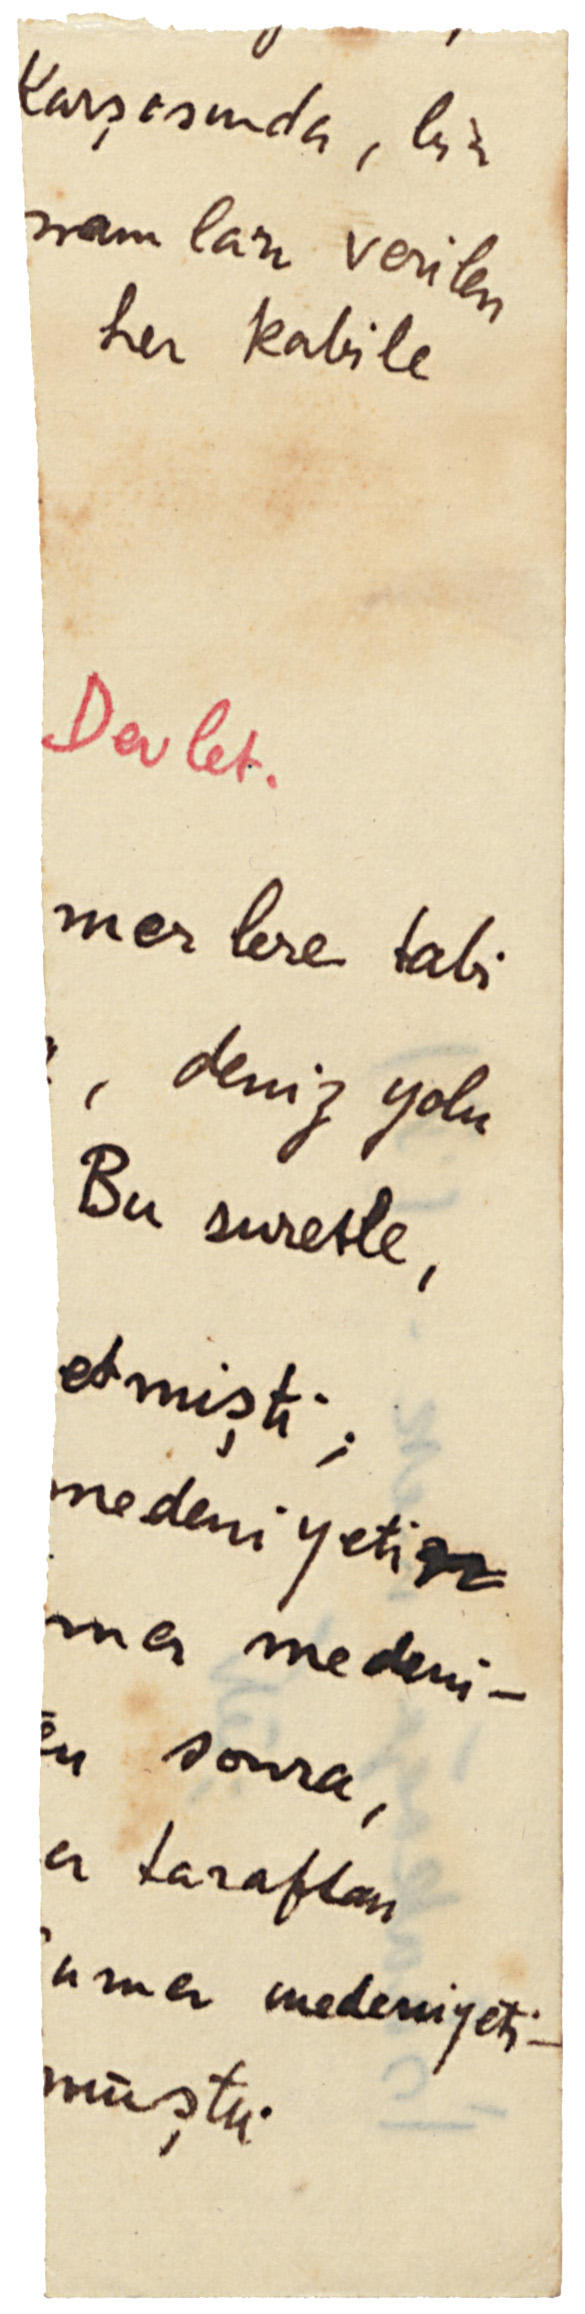 karşısında, bir
namları verilen
her kabile
Devlet.
merlere tabi
, deniz yolu
Bu suretle,
etmişti;
medeniyeti
mer medeni-
en sonra,
er taraftan
umer medeniyeti-
müştü.